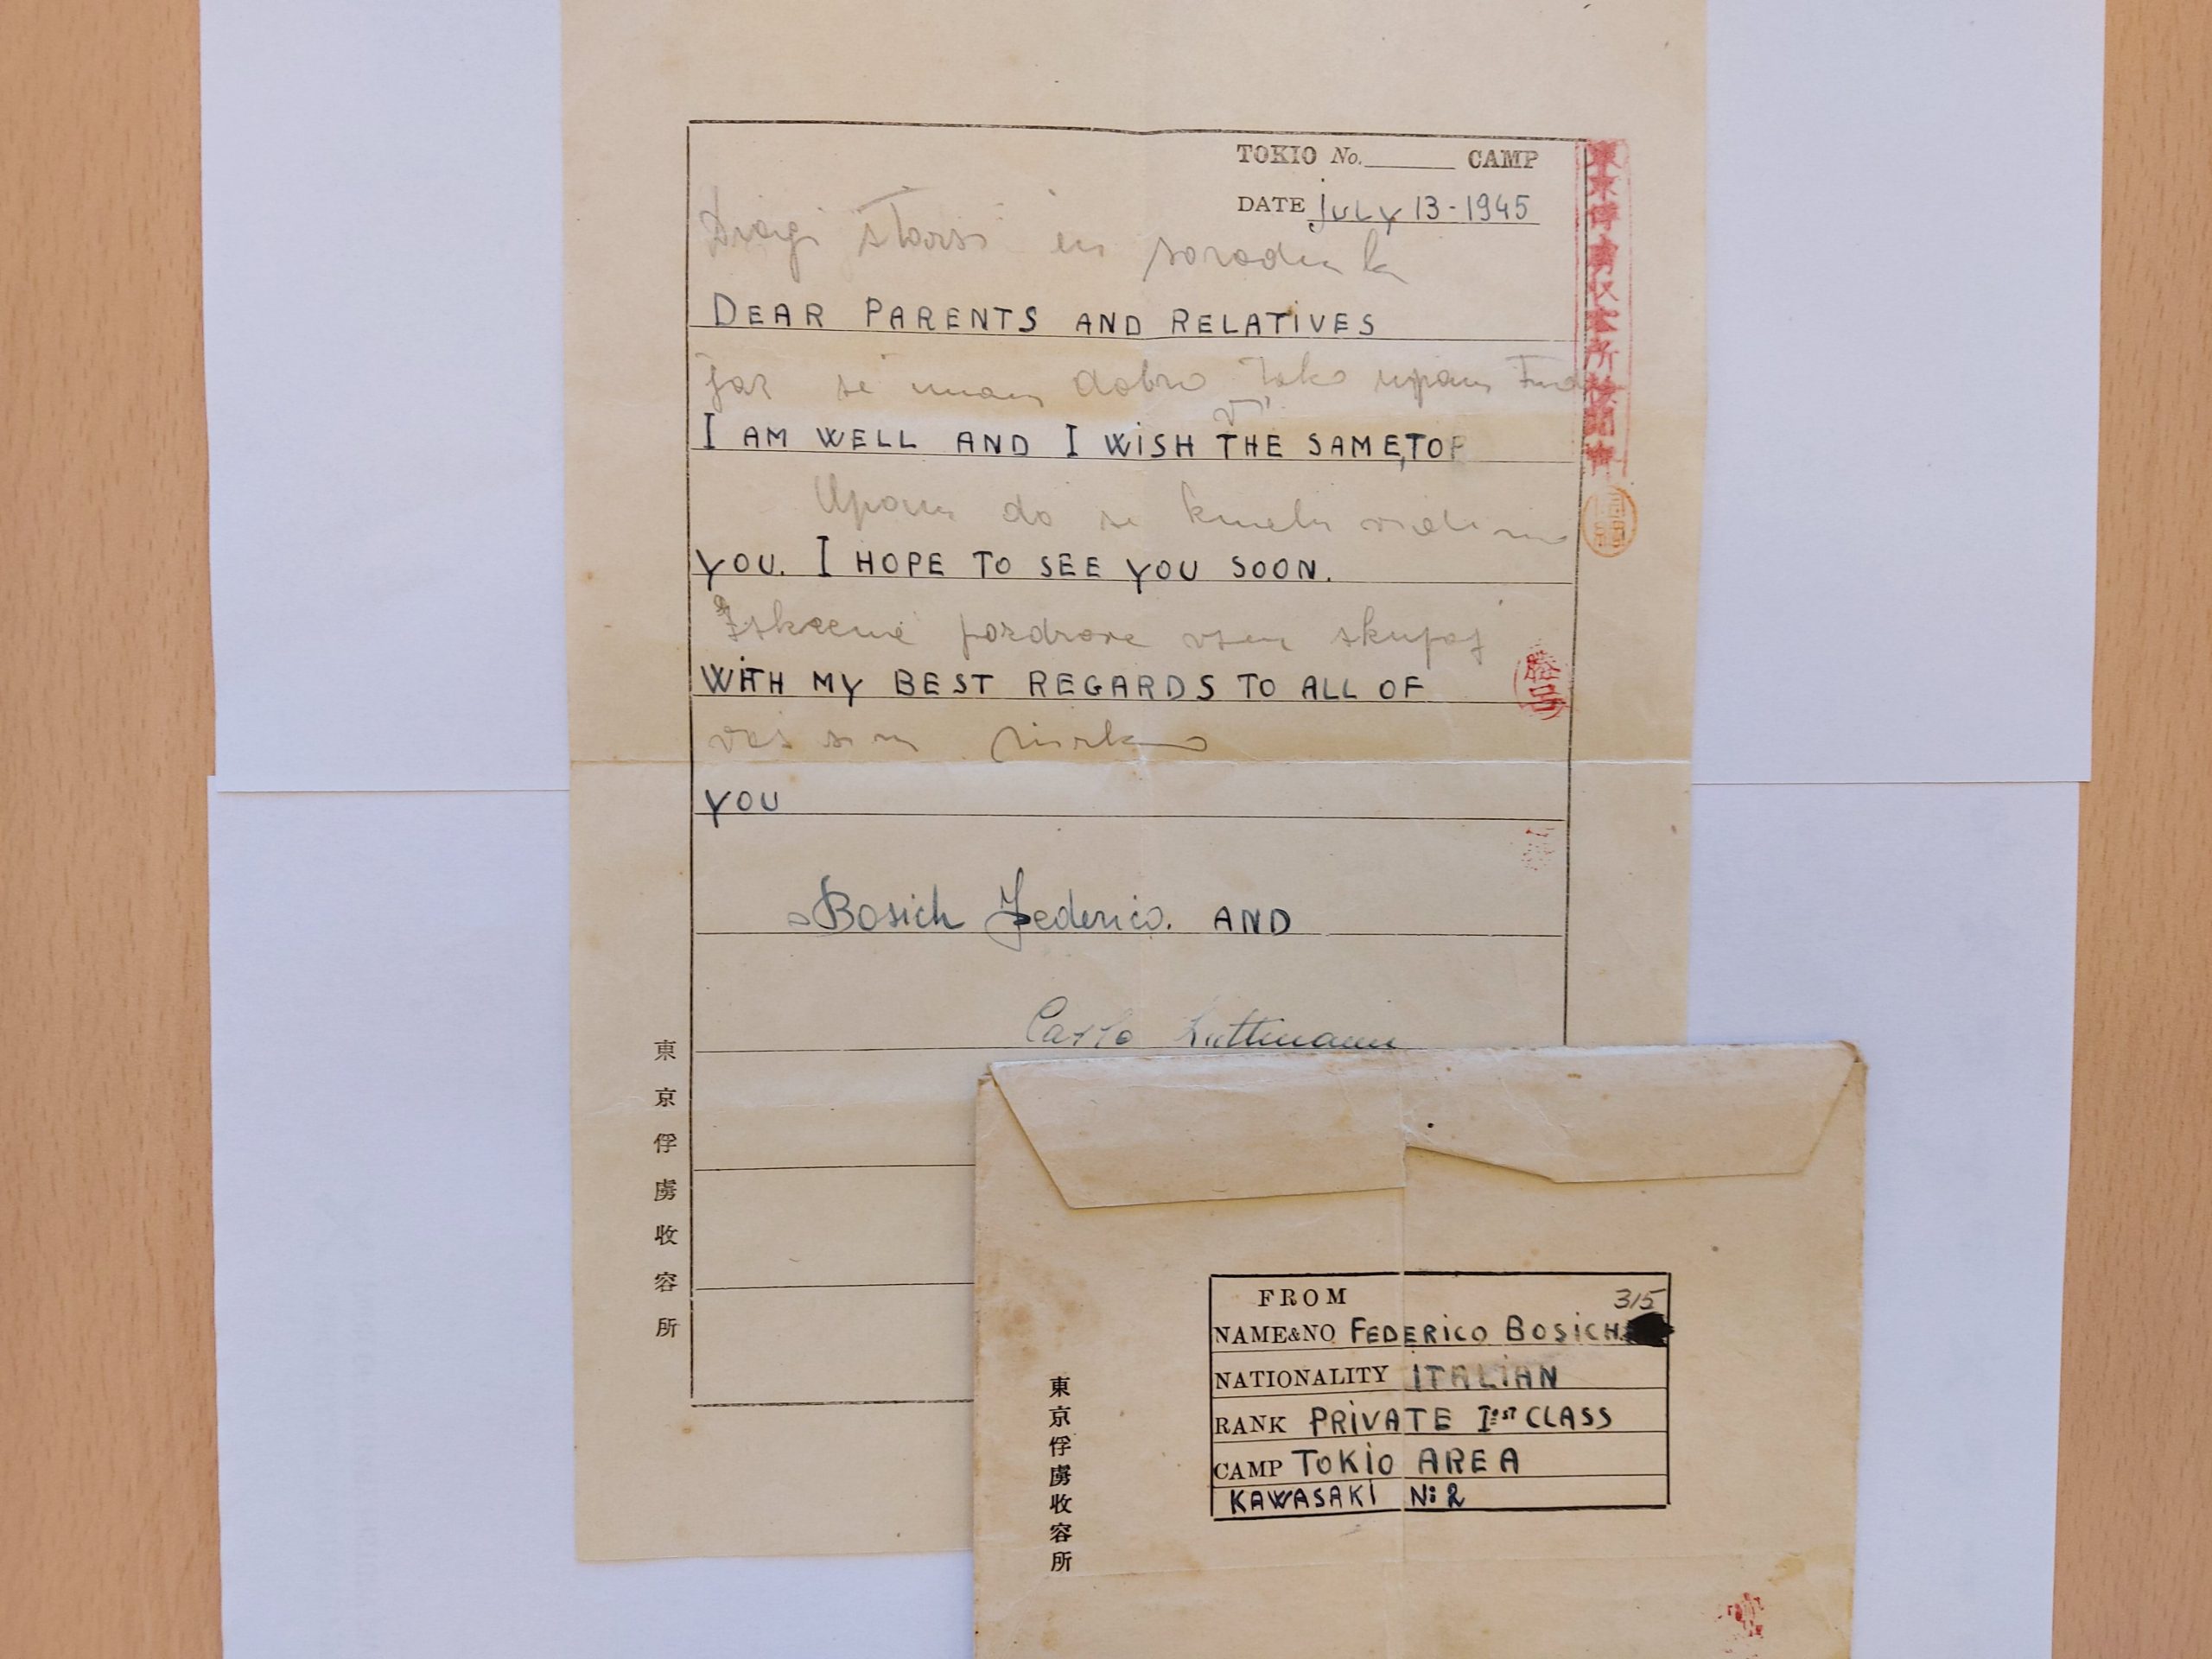 TOKIO No. CAMP
DATE july 13-1945
Dragi starsi in
DEAR PARENTS AND RELATIVES
jaz se imam dobro Tako upam Tud
vi
I AM WELL AND I WISH THE SAME, TO
Upam da se kmalu vidimo
YOU. I HOPE TO SEE YOU SOON.
Iskrene pozdrave vsem skupaj
WITH MY BEST REGARDS TO ALL OF
vas sin Mirko
YOU
Bosich Federico. AND
Carlo Luttmann
東京俘虜収容所検閲済
東京俘虜收容所
FROM
315
NAME&NO FEDERICO BOSICH
NATIONALITY ITALIAN
RANK PRIVATE Iº ST CLASS
CAMP TOKIO AREA
KAWASAKI N: 2
東京俘虜收容所